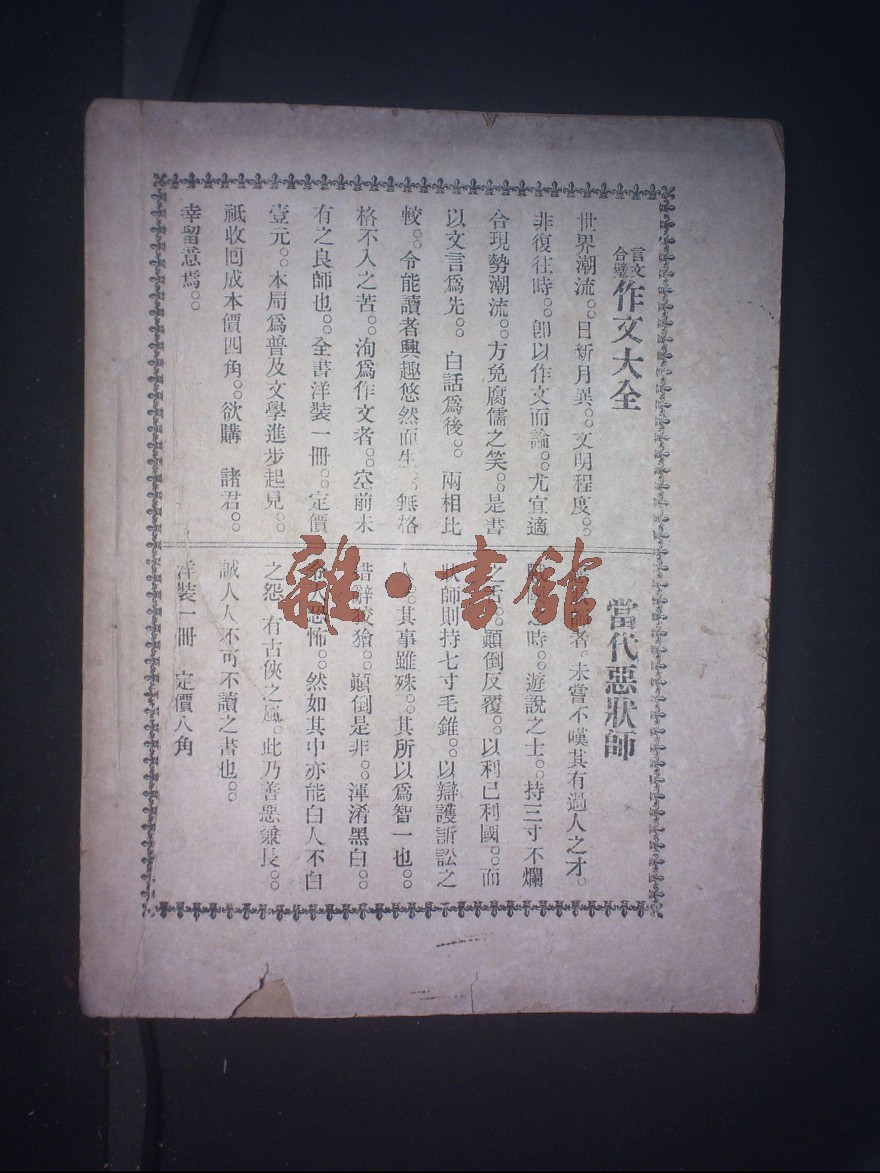 言文
合璧
作文大全
世界潮流。。日新月異。。文明程度。。
非復往時。。卽以作文而論。。尤宜適
合現勢潮流。。方免腐儒之笑。。是書
以文言爲先。。白話爲後。。兩相比
較。。令能讀者興趣悠然而生。。無格
格不入之苦。。洵爲作文者。。空前未
有之良師也。。全書洋裝一冊。。定價
壹元。。本局爲普及文學進步起見。。
祇收囘成本價四角。。欲購 諸君。。
幸留意焉。。
當代惡狀師
者。未嘗不嘆其有過人之才。
之時。。遊說之士。。持三寸不爛
之舌。。顚倒反覆。。以利己利國。。而
狀師則持七寸毛錐。。以辯護訴訟之
人。。其事雖殊。。其所以爲智一也。。
措辭狡獪。。顚倒是非。。渾淆黑白。。
恐怖。。然如其中亦能白人不白
之怨。有古俠之風。此乃善惡兼長。。
誠人人不可不讀之書也。。
洋裝一冊 定價八角
雜·書館